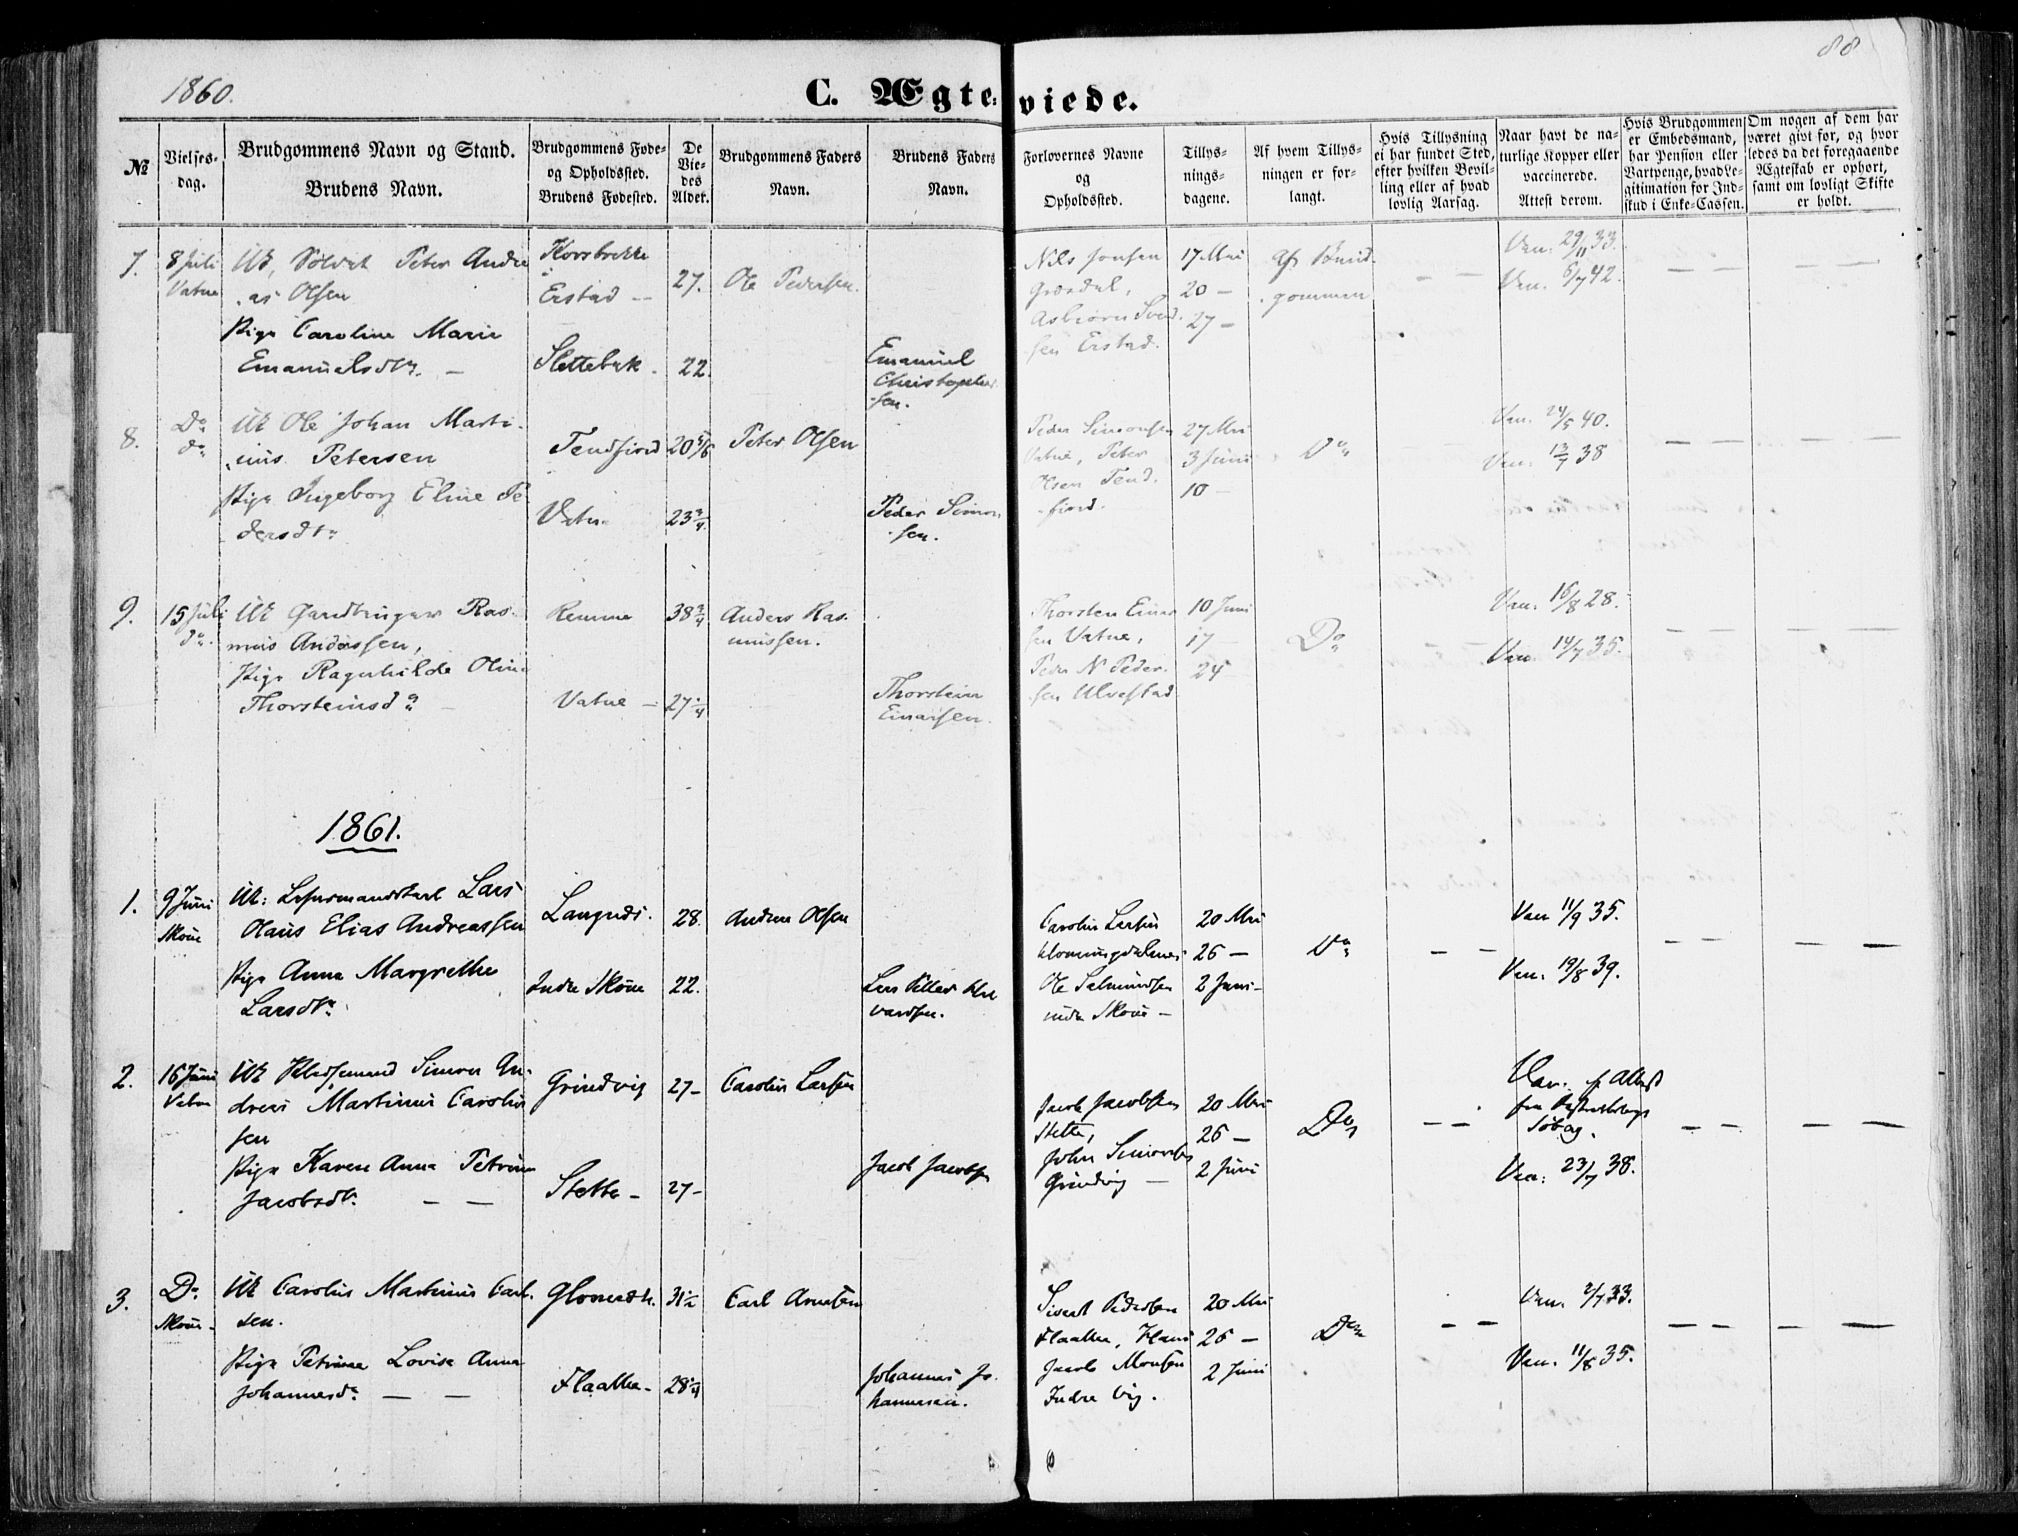 1860.
C. Ægteviede.
88
№
Vielses-
dag.
Brudgommens Navn og Stand.
Brudens Navn.
Brudgommens Føde-
og Opholdssted.
Brudens Fødested.
De
Vie-
des
Alder.
Brudgommens Faders
Navn.
Brudens Faders
Navn.
Forlovernes Navne
og
Opholdssted.
Tillys-
nings-
dagene.
Af hvem Tillys-
ningen er for-
langt.
Hvis Tillysning
ei har fundet Sted,
efter hvilken Bevil-
ling eller af hvad
lovlig Aarsag.
Naar havt de na-
turlige Kopper eller
vaccinerede.
Attest derom.
Hvis Brudgommen
er Embedsmand,
har Pension eller
Vartpenge, hvad Le-
gitimation for Ind-
skud i Enke-Cassen.
Om nogen af dem har
været givt før, og hvor
ledes da det foregaaende
Ægteskab er ophørt,
samt om lovligt Skifte
er holdt.
7.
8 Juli
Vatne
Uk. Peter Andre
as Olsen
Pige Caroline Marie
Emanuelsdtr. —
Korsbrekke
Erstad —
Slettebak
27.
22.
Ole Pedersen.
Emanuel
Christopher
sen.
Nils Jonsen
Grødal,
Asbiørn Svend.
sen Erstad.
17 Mai
20 —
27 —
Af Brud.
gommen
Vac. 29/11 33.
Vac. 6/7 42.
8.
Do
do
Uk Ole Johan Marti-
nus Petersen
Pige Ingeborg Eline Pe
dersdtr
Tendfiord
Vatne
20 5/6
23 3/4
Peter Olsen
Peder Simon
sen.
Peder Simonsen
Vatne, Peter
Olsen Tend.
fiord.
27 Mai
3 Juni
10 —
Do
Vac. 24/5 40.
Vac. 13/7 38
9.
15 Juli
do.
Uk Gaardbruger Ras-
mus Anderssen,
Pige Ragnhilde Olina
Thorsteinsd —
Remme
Vatne —
38 3/4
27 1/4
Anders Ras-
mussen.
Thorstein
Einarsen.
Thorsten Einar
sen Vatne,
Peder N Peder-
sen Ulvestad
10 Juni
17
24
Do
Vac. 16/8 28.
Vac. 14/7 35.
1861.
1.
9 Juni
Skoue
Uk: Lars
Olaus Elias Andreassen
Pige Anna Margrethe
Larsdtr
Indre Skoue
28.
22.
Andreas Olsen
Lars Petter
vardsen.
Carolus Larsen
Ole Salmundsen
indre Skoue —
20 Mai
26 —
2 Juni —
Do
Vac 11/9 35.
Vac. 19/8 39.
2.
16 Juni
Vatne
Uk Simon An-
dreas Martinus Carolus
sen
Pige Karen Anna Petrine
Jacobsdtr. — —
Grindvig
Stette —
27 —
27 —
Carolus Larsen
Jacob Jacobsen
Jacob Jacobsen
Stette,
John Simonsen
Grindvig —
20 Mai
26 —
2 Juni
Do
Vac. Attest
fra
Vac: 23/7 38.
3.
Do
Skoue —
Uk Carolus Martinus Carl-
sen.
Pige Petrine Lovise Anna
Johannesdr — —
Flaathe —
31 1/2
28 1/4
Carl Arnesen
Johannes Jo-
hannesen.
Sivert Pedersen
Flaathe, Hans
Jacob Monsen
Indre Vig.
20 Mai
26 —
2 Juni
Do
Vac. 2/7 33.
Vac. 11/8 35.